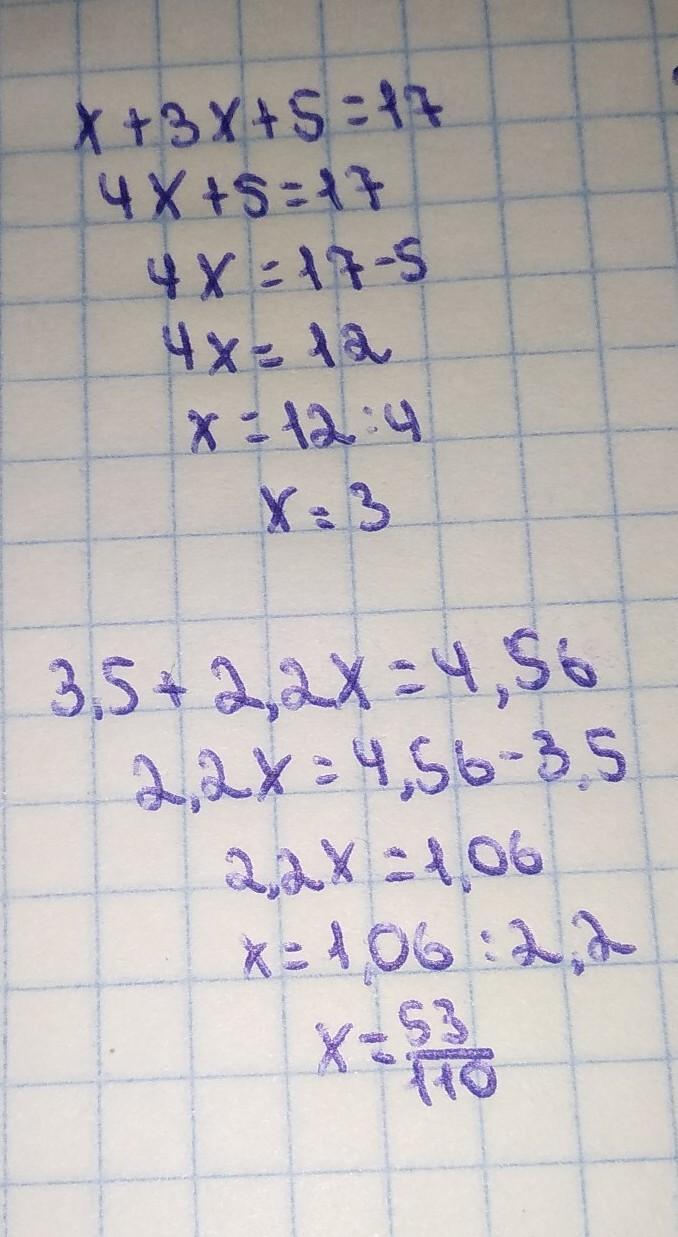 x+3x+5=17
4x+5=17
4x=17-5
4x=12
x=12:4
x=3
3,5+2,2x=4,56
2,2x=4,56-3,5
2,2x=1,06
x=1,06:2,2
x=53/110